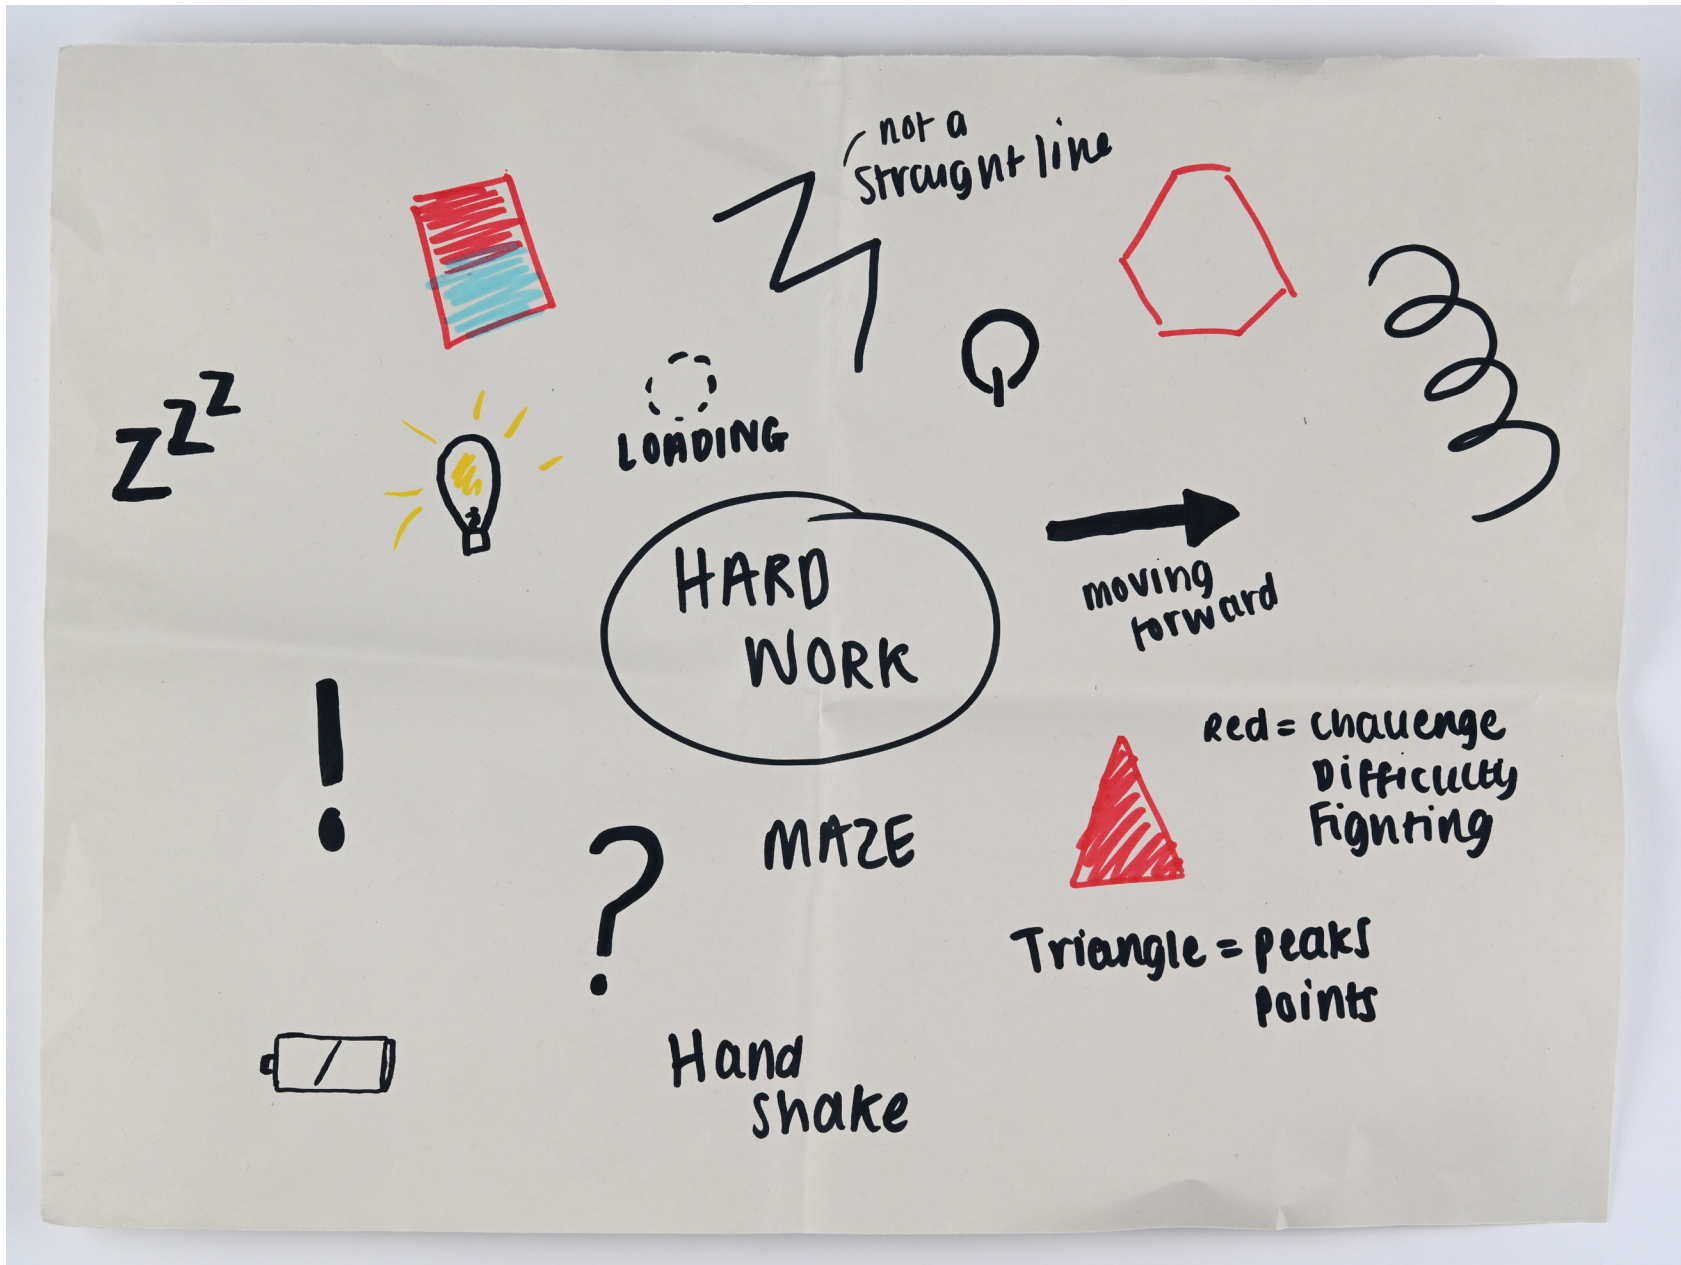 not a
straight line
zzz
LOADING
HARD
WORK
moving
forward
!
Red = challenge
Difficulty
Fighting
?
MAZE
Triangle = peaks
points
Hand
shake